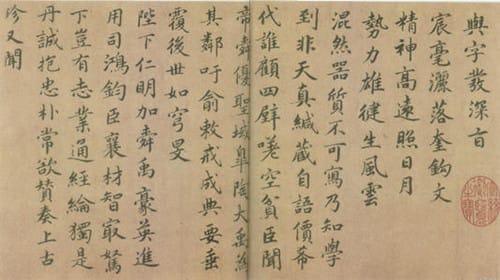 與字發深旨
宸毫灑落奎鉤文
精神高遠照日月
勢力雄健生風雲
混然器質不可寫乃知學
到非天真緘藏自語價希
代誰顧四壁嗟空貧臣聞
帝舜優聖域皐陶大禹為
其鄰吁俞敕戒成典要垂
覆後世如穹旻
陛下仁明加舜禹豪英進
用司鴻鈞臣襄材智最駑
下豈有志業通經綸獨是
丹誠抱忠朴常欲贊奏上古
珍又聞